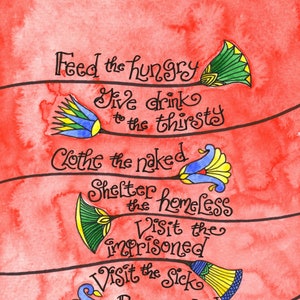 Feed the hungry
Give drink
to the thirsty
Clothe the naked
Shelter
the homeless
Visit the
imprisoned
Visit the Sick